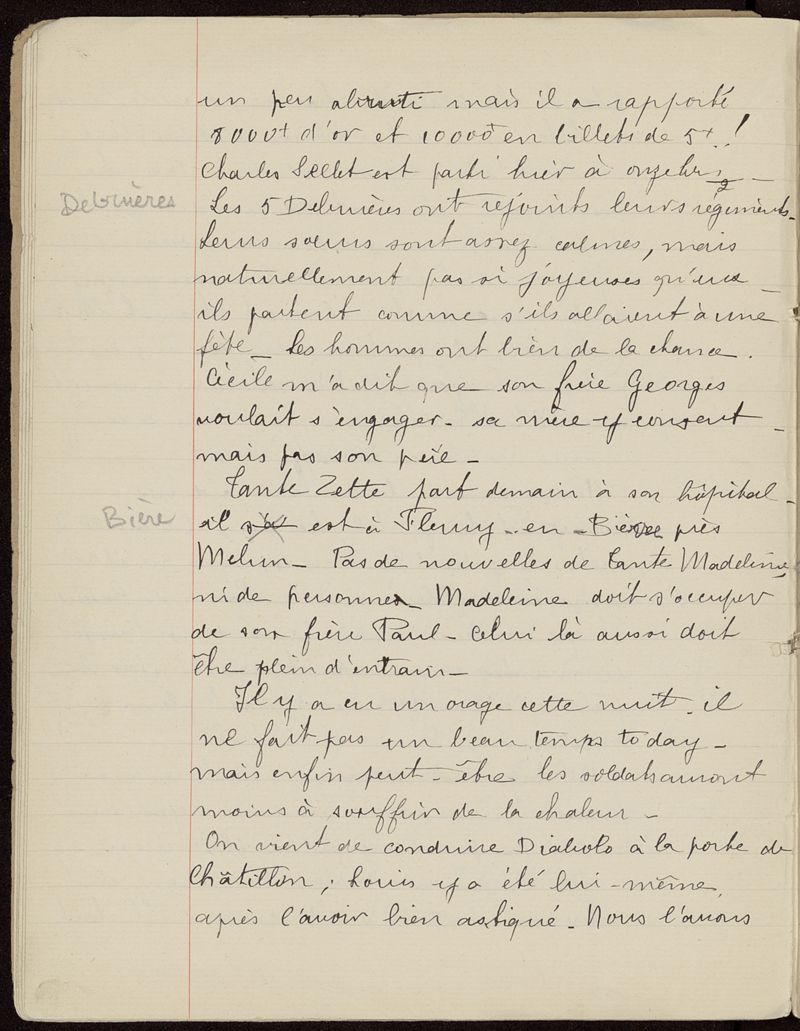 un peu abruti mais il a rapporté
8000f d'or et 10000f en billets de 5f.!
Charles Sellet est parti hier à onze hrs_
Debruières
Les 5 Debruières ont rejoints leurs régiments_
Leurs sœurs sont assez calmes, mais
naturellement pas si joyeuses qu'eux_
ils partent comme s'ils allaient à une
fête_ Les hommes ont bien de la chance.
Cécile m'a dit que son frère Georges
voulait s'engager_ sa mère y consent_
mais pas son père_
Tante Zette part demain à son hôpital_
Bière
il est à Fleury-en-Bière près
Melun_ Pas de nouvelles de tante Madeleine,
ni de personne_ Madeleine doit s'occuper
de son frère Paul_ Celui là aussi doit
être plein d'entrain_
Il y a eu un orage cette nuit_ il
ne fait pas un beau temps to day_
mais enfin peut-être les soldats auront
moins à souffrir de la chaleur_
On vient de conduire Diabolo à la porte de
Châtillon; Louis y a été lui-même,
après l'avoir bien astiqué_ Nous l'avons